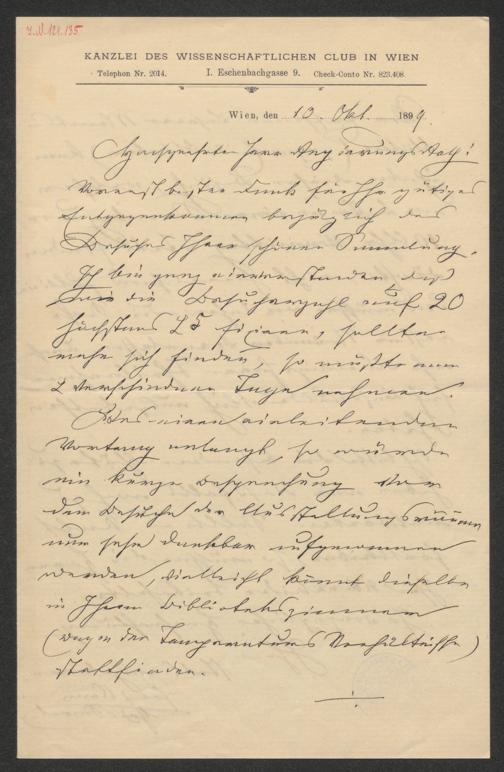 I.N. 121.135
KANZLEI DES WISSENSCHAFTLICHEN CLUB IN WIEN
Telephon Nr. 2014. I. Eschenbachgasse 9. Check-Conto Nr. 823.408.
Wien, den 10. Okt. 1899.
Hochgeehrter Herr Regierungs Rath!
Vorerst besten Dank für Ihr gütiges
Entgegenkommen bezüglich des
Besuches Ihrer schönen Sammlung.
Ich bin ganz einverstanden daß
die Besucherzahl auf 20
höchstens 25 fixieren, sollten
mehr sich finden, so müßte man
2 verschiedene Tage nehmen.
Was einen einleitenden
Vortrag anlangt, so würde
eine kurze Besprechung vor
dem Besuche der Ausstellungsräume
nur sehr dankbar aufgenommen
werden, vielleicht könnt dieselbe
in Ihrem Bibliotekszimmer
(wegen der Temperaturs Verhältnisse)
stattfinden.